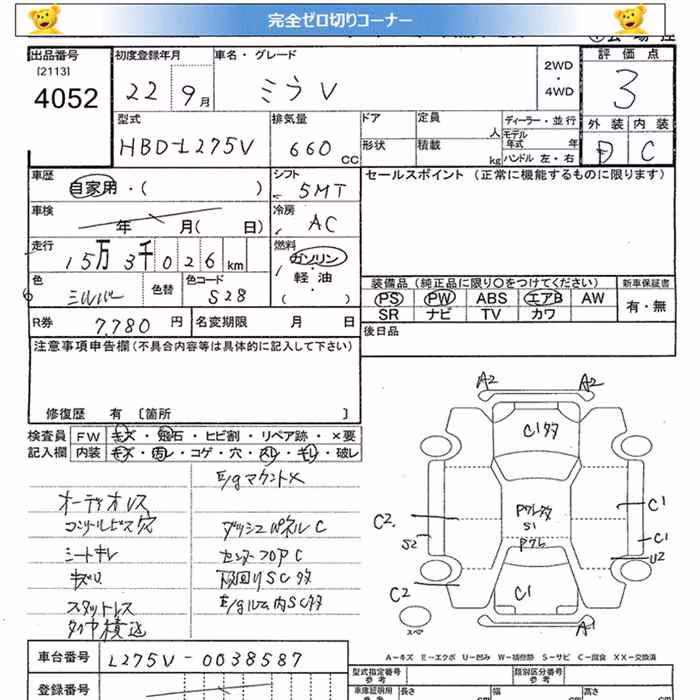 完全ゼロ切りコーナー
出品番号
[2113]
4052
初度登録年月
22 9月
車名・グレード
ミラV
2WD
・
4WD
評価点
3
型式
HBD-L275V
排気量
660 CC
ドア
形状
定員 人
積載 kg
ディーラー・並行
モデル
年式 年
ハンドル 左・右
外装 内装
D C
車歴
自家用・( )
シフト
5MT
セールスポイント(正常に機能するものに限ります)
車検
年 月( 日)
冷房
AC
走行
15万3千026km
燃料
ガソリン
・
軽油
( )
色
シルバー
色替
色コード
S28
装備品(純正品に限り○をつけてください)
PS PW ABS エアB AW
SR ナビ TV カワ
新車保証書
有・無
R券 7,780 円
名変期限 月 日
後日品
注意事項申告欄(不具合内容等は具体的に記入して下さい)
修復歴 有 [箇所 ]
検査員
記入欄
FW キズ・飛石・ヒビ割・リペア跡・×要
内装 キズ・汚レ・コゲ・穴・スレ・キレ・破レ
E/gマウント×
オーディオレス
コンソールビス穴
ダッシュパネルC
シートキレ
センターフロアC
キズリ
下回りSC多
スタットレス
タイヤ積込
E/gルーム内SC多
A2 A2
C1多
Pクレ多
S1
Pクレ
C1
C2
S2
C2
C1
C1
U2
A1
スペア
A-キズ E-エクボ U-凹み W-補修跡 S-サビ C-腐食 XX-交換済
車台番号
L275V-0038587
登録番号
型式指定番号
参考
類別区分番号
参考
車庫証明用
参考
長さ
cm
幅
cm
高